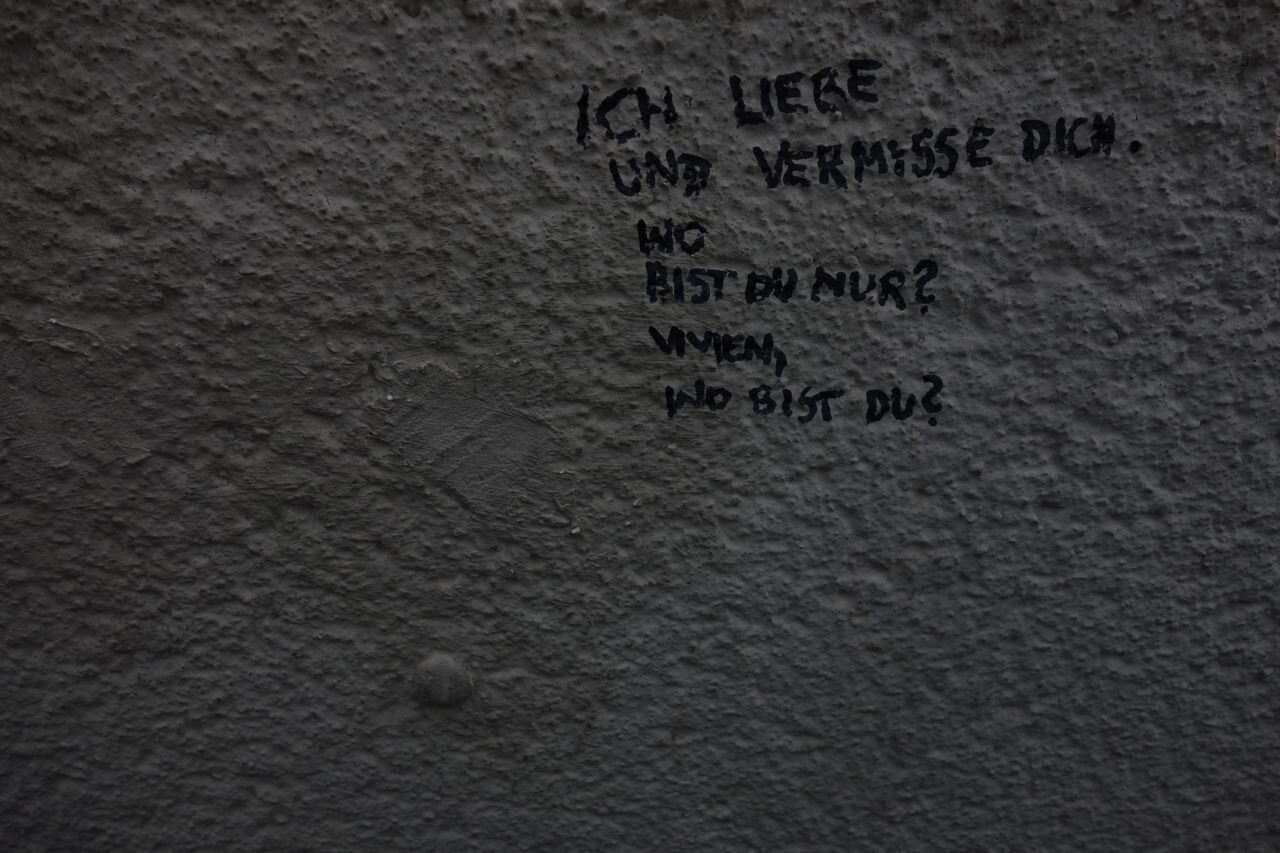 ICH LIEBE
UND VERMISSE DICH.
WO
BIST DU NUR?
VIVIEN,
WO BIST DU?